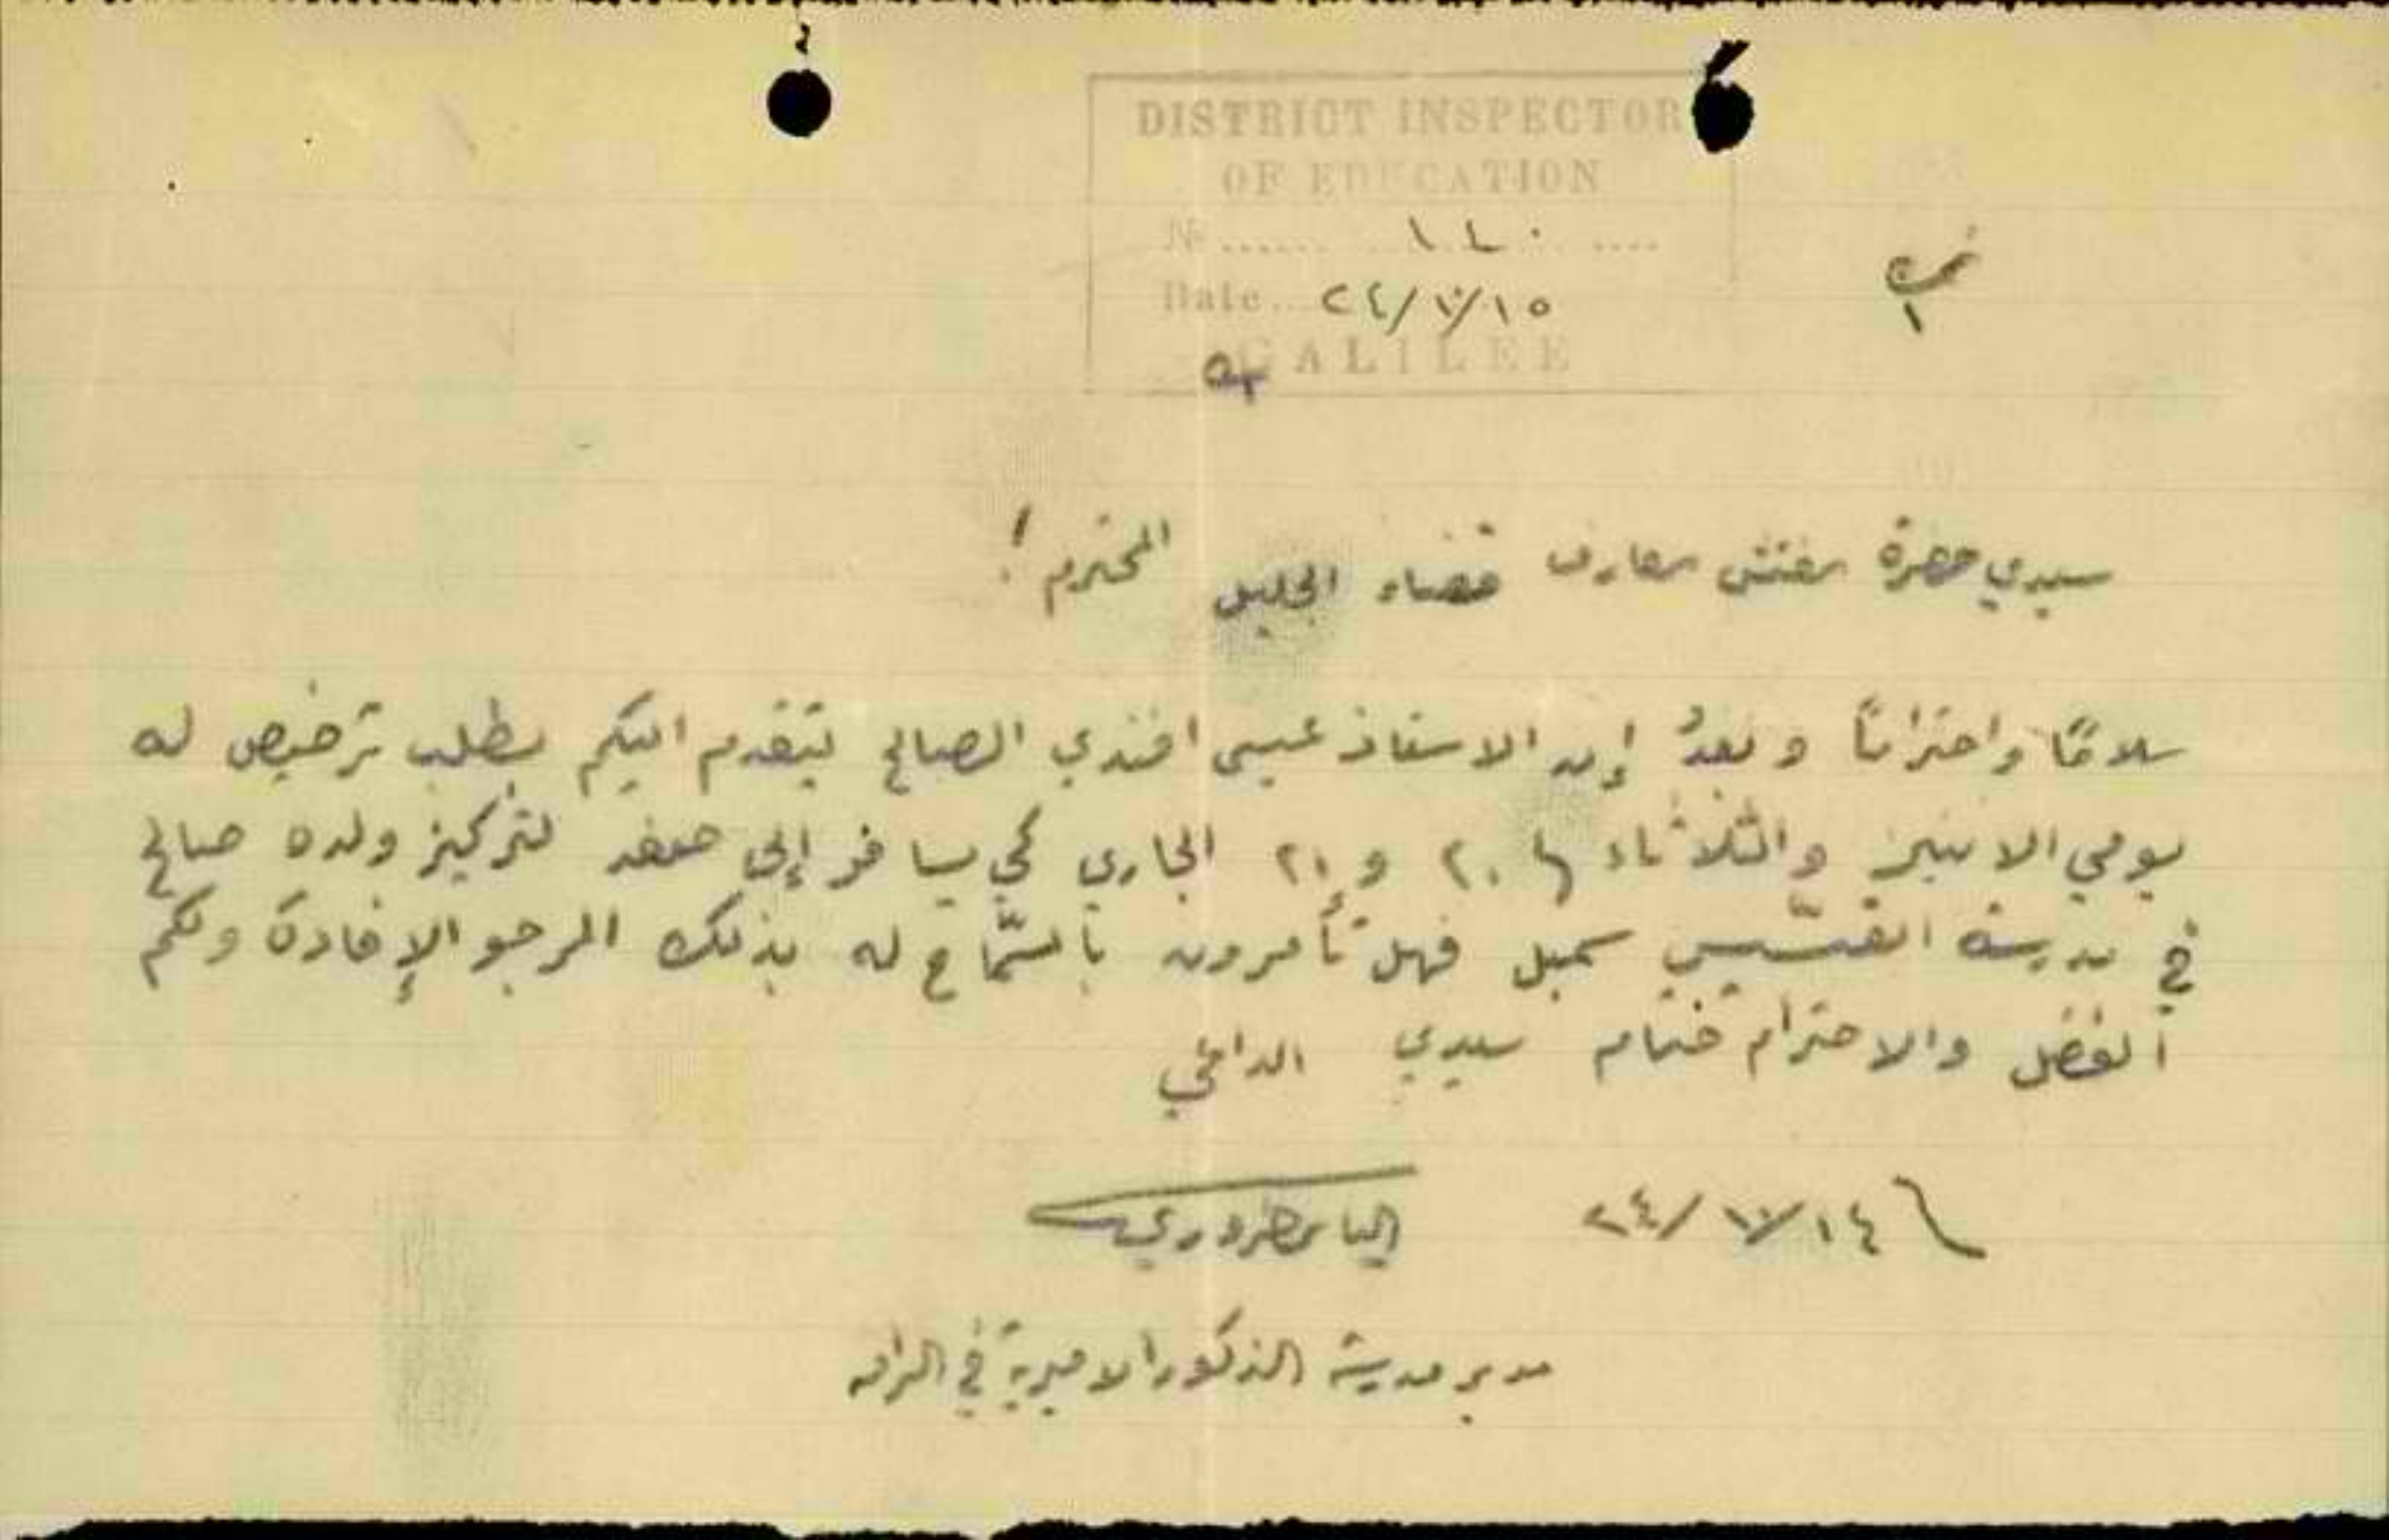 DISTRICT INSPECTOR
OF EDUCATION
№ ...... ١٤٠ ....
Date... ٢٤/١٠/١٥
GALILEE
نمرة
١
سيدي حضرة مفتش معارف قضاء الجليل المحترم!
سلامًا واحترامًا وبعدُ إن الاستاذ عيسى افندي الصالح يتقدم اليكم بطلب ترخيص له
يومي الاثنين والثلاثاء ٢٠ و ٢١ الجاري كي يسافر إلى صفد لتركيز ولده صالح
في مدرسة القسّيس سمبل فهل تأمرون بالسّماح له بذلك المرجو الإفادة ولكم
الفضل والاحترام ختام سيدي الداعي
٢٤/١٠/١٤
الياس
مدير مدرسة الذكور الاميرية في الرامه